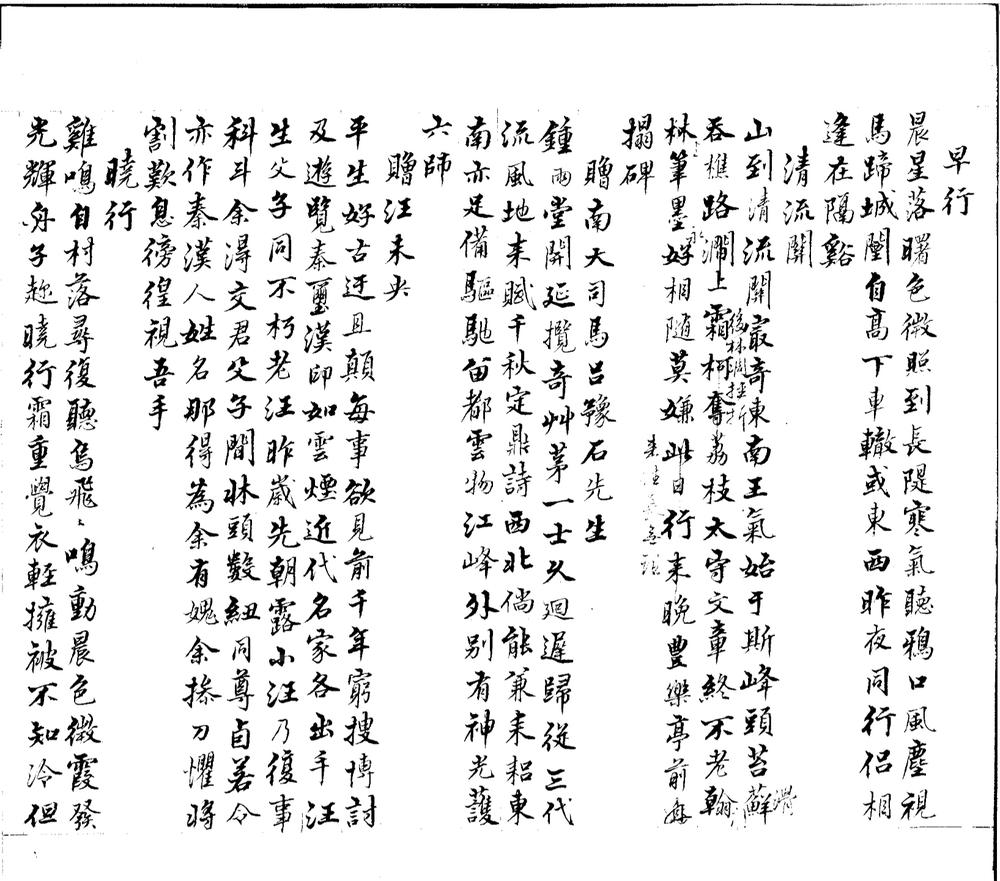 早行
晨星落曙色微照到長隄寒氣聽鴉口風塵視
馬蹄城闉自高下車轍或東西昨夜同行侶相
逢在隔谿
清流關
山到清流關最奇東南王氣始于斯峰頭苔蘚
吞樵路澗上霜柯奪荔枝太守文章終不老翰
林筆墨好相隨莫嫌此日行來晚豐樂亭前每
搨碑
贈南大司馬呂豫石先生
鍾雨堂開延攬奇艸茅一士久迴遲歸從三代
流風地來賦千秋定鼎詩西北倘能兼耒耜東
南亦足備驅馳留都雲物江峰外別有神光護
六師
贈汪未央
平生好古迂且顛每事欲見前千年窮搜博討
及遊覽秦璽漢印如雲煙近代名家各出手汪
生父子同不朽老汪昨歲先朝露小汪乃復事
科斗余淂交君父子間牀頭數紐同尊卣若令
亦作秦漢人姓名那得為余有媿余捺刀懼將
割歎息徬徨視吾手
曉行
雞鳴自村落尋復聽烏飛飛鳴動晨色微霞發
光輝舟子趂曉行霜重覺衣輕擁被不知冷但